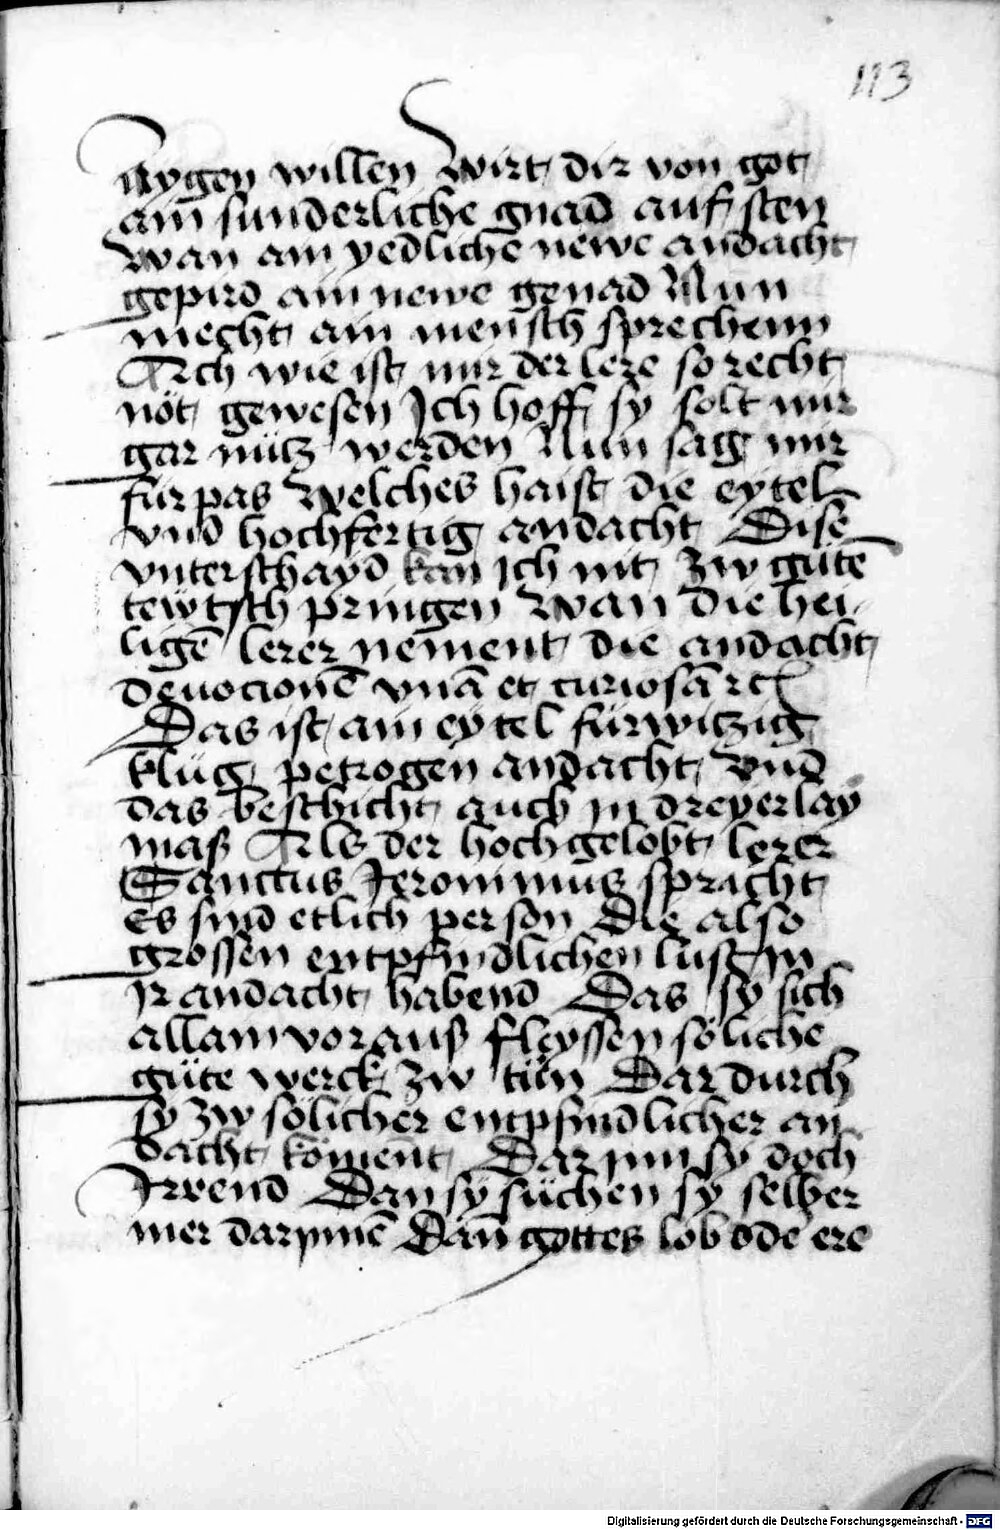 113
aygen willen wirt dir von got
ain sunderliche gnad auf sten
wan ain yedliche newe andacht
gepird ain newe genad Nun
mecht ain mensch sprechenn
Ach wie ist mir der lere so recht
nöt gewesen Ich hoff sy solt mir
gar nütz werden Nun sag mir
fürpas welches haist die eytel
vnd hochfertig andacht Dise
vnterschayd kan ich nit zw gutē
tewtsch pringen wan die hei-
ligē lerer nement die andacht
deuocionē vnā et curiosā rc
Das ist ain eytel fürwitzig
klüg petrogen andacht vnd
das beschicht auch in dreyerlay
maß Als der hochgelobt lerer
Sanctus Jeronimus spracht
Es sind etlich person die also
grossen entpfindlichen lust in
ir andacht habend Das sy sich
allain vorauß fleyssen söliche
güte werck zw tün Dar durch
sy zw sölicher entpfindlicher an
dacht köment Dar inn sy doch
Irrend Dan sy süchen sy selber
mer darynnē Dan gottes lob ode ere
Digitalisierung gefördert durch die Deutsche Forschungsgemeinschaft - DFG